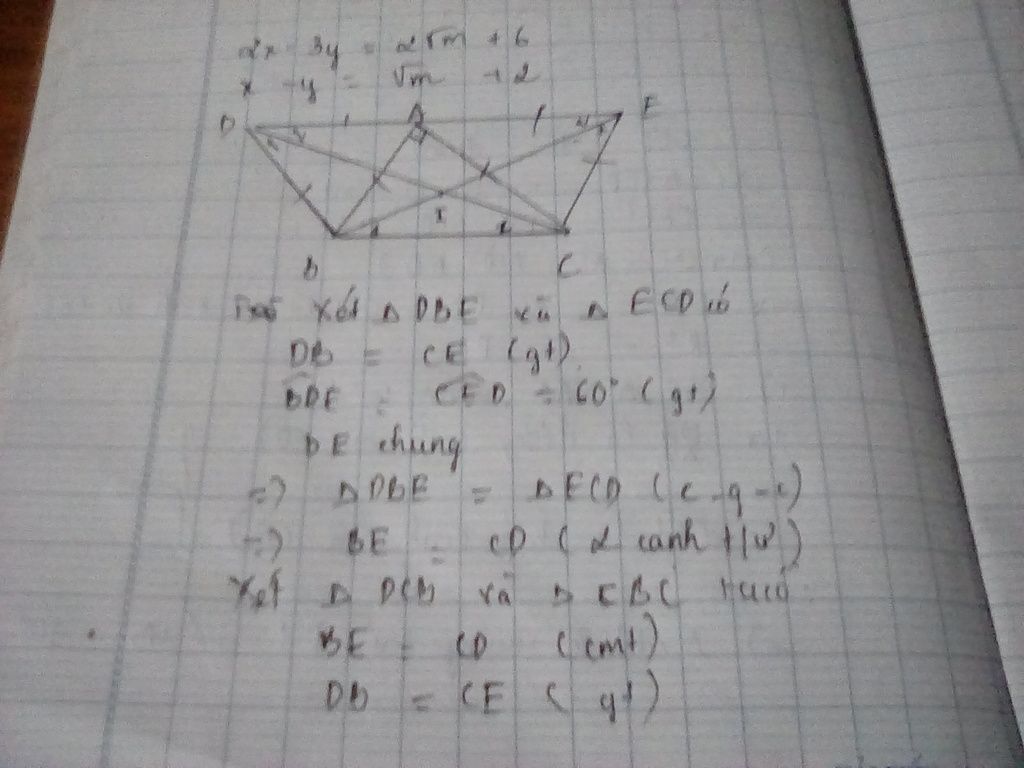 2x - 3y = 2√m + 6
x - y = √m + 2
D A E
I
B C
Xét Δ DBE và Δ ECD có
DB = CE (gt)
BDE = CED = 60° (gt)
DE chung
=> Δ DBE = Δ ECD (c-g-c)
=> BE = CD (2 cạnh t/ư)
Xét Δ DCB và Δ EBC
BE = CD (cmt)
DB = CE (gt)